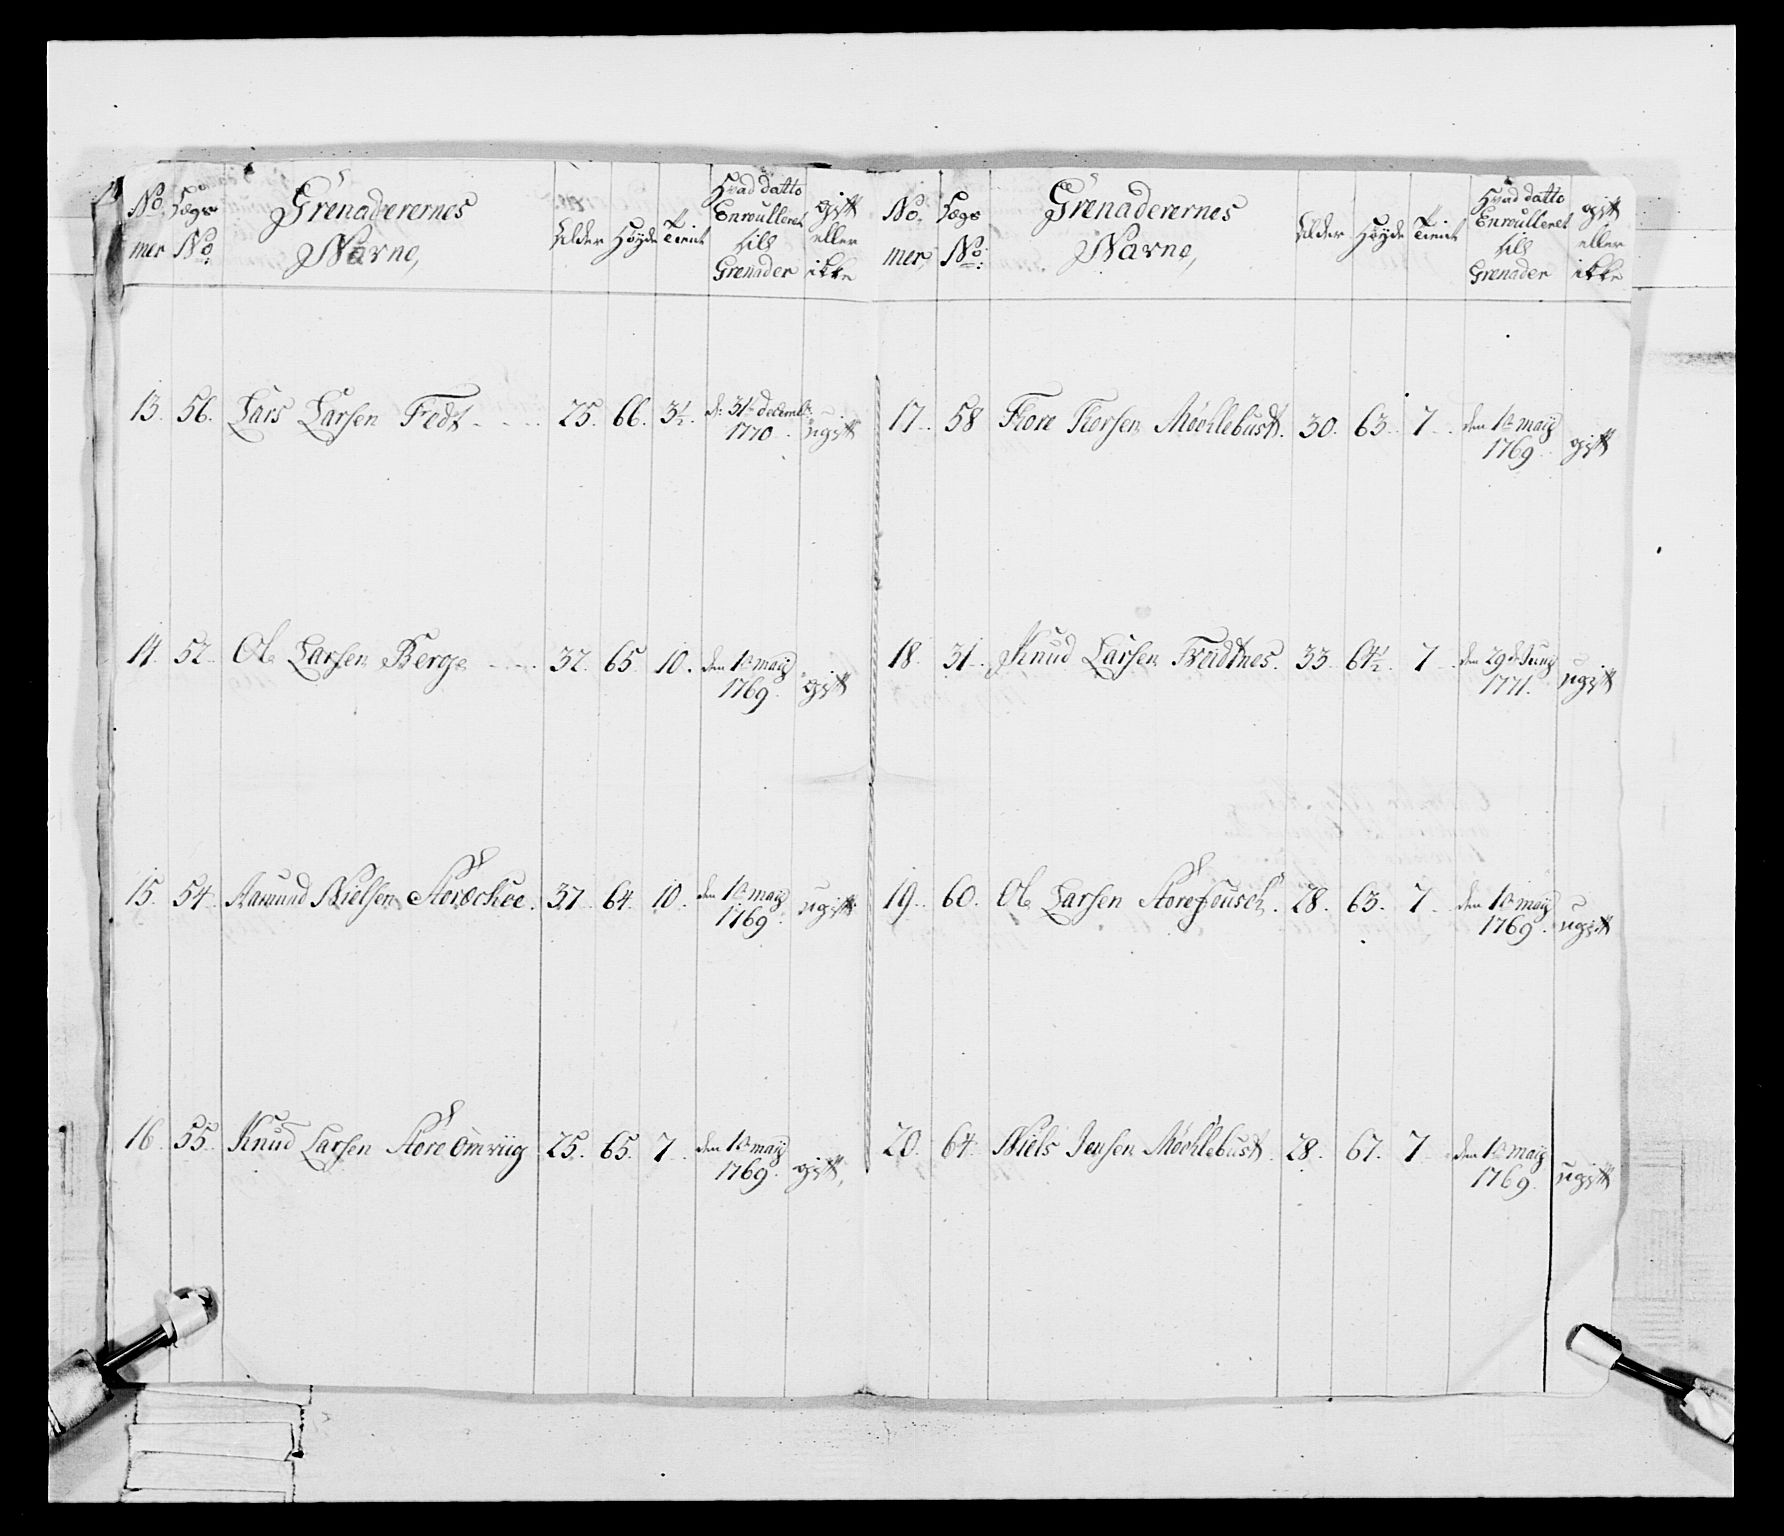 No mer | Lægs No | Grenaderernes Navne, | Alder | Høyde | Tient | Hvad datto Enroulleret till Grenader | gift eller ikke
13. 56. Lars Larsen Fedt 25. 66. 3½. d: 31te decembr: 1770. ugift
14. 52. Ole Larsen Berge 32. 65. 10. den 1te maij 1769. gift
15. 54. Aamund Nielsen 37. 64. 10. den 1te maij 1769. ugift
16. 55. Knud Larsen Store Omviig 25. 65. 7. den 1te maij 1769. gift,
No. mer, | Lægs No: | Grenaderernes Navne, | Alder | Høyde | Tient | Hvad datto Enroulleret till Grenader | gift eller ikke
17. 58 Tore Torsen Møchlebust. 30. 63. 7. den 1te maij 1769. gift
18. 31. Knud Larsen 33. 64½. 7. den 29de Junij 1771. ugift
19. 60. Ole Larsen 28. 63. 7. den 1te maij 1769. ugift
20. 64. Niels Jensen Møchlebust 28. 67. 7. den 1te maij 1769. ugift